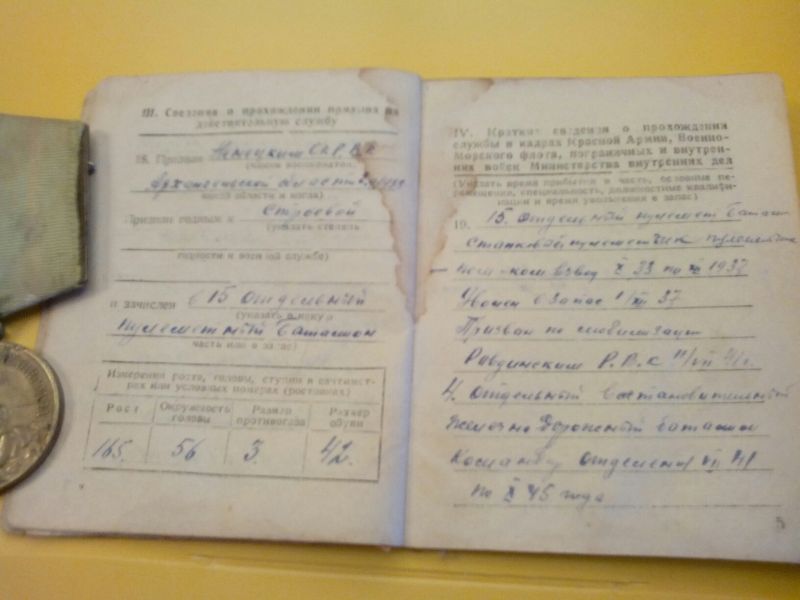 III. Сведения о прохождении призыва на
действительную службу
18. Призван Ненецким Окр. В.К
Архангельской области
(какой области и когда)
Признан годным к строевой
(указать степень
годности к военной службе)
и зачислен в 15 отдельный
(указать в какую
пулеметный баталион
часть или в запас)
Измерения роста, головы, ступни в сантимет-
рах или условных номерах (ростовках)
Рост
Окружность головы
Размер противогаза
Размер обуви
165.
56
3.
42.
IV. Краткие сведения о прохождении
службы в кадрах Красной Армии, Военно-
Морского флота, пограничных и внутрен-
них войск Министерства внутренних дел
(Указать время прибытия в часть, основные пе-
ремещения, специальность, должностные квалифи-
кации и время увольнения в запас)
19. 15. отдельный пулемет. баталион
Станковый пулеметчик
пом. ком. взвод X 33 по XI 1937
Уволен в запас 1/XII 37
Призван по мобилизации
Равдинским Р.В.К 11/VII 41 г.
4. отдельный восстановительный
железно дорожный баталион
Командир отделения VII 41
по X 45 года
5